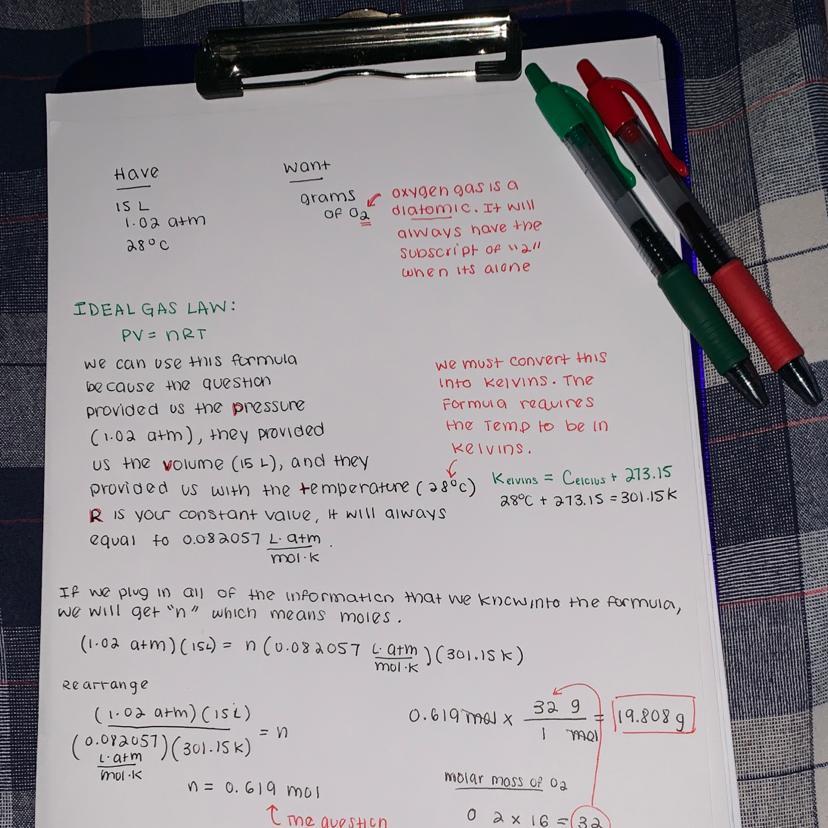 Have
15 L
1.02 atm
28°C
Want
grams
of O2
oxygen gas is a
diatomic. It will
always have the
subscript of "2"
when its alone
IDEAL GAS LAW:
PV = nRT
we can use this formula
because the question
provided us the pressure
(1.02 atm), they provided
us the volume (15 L), and they
provided us with the temperature (28°C)
R is your constant value, it will always
equal to 0.082057 L·atm/mol·K.
we must convert this
into Kelvins. The
Formula requires
the Temp to be in
Kelvins.
Kelvins = Celcius + 273.15
28°C + 273.15 = 301.15K
If we plug in all of the information that we know into the formula,
we will get "n" which means moles.
(1.02 atm)(15L) = n(0.082057 L·atm/mol·K)(301.15K)
Rearrange
(1.02 atm)(15L)
(0.082057 L·atm/mol·K)(301.15K) = n
n = 0.619 mol
the question
0.619 mol x 32 g / 1 mol = 19.808 g
molar mass of O2
O 2 x 16 = 32